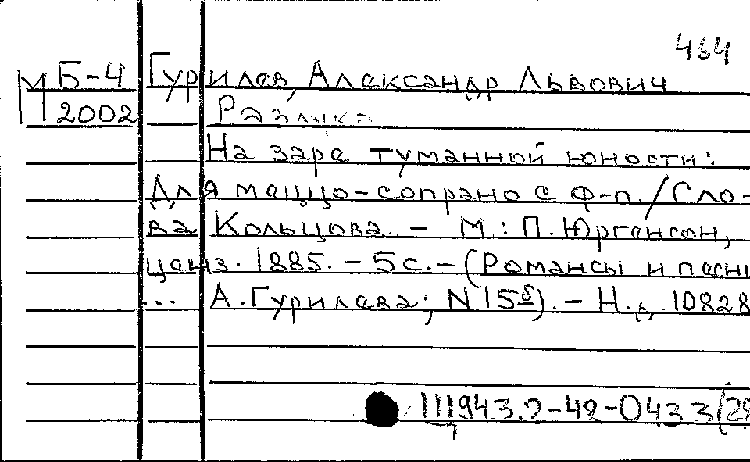 464
М Б-4 Гурилев, Александр Львович
2002 Разлука
На заре туманной юности:
Для меццо-сопрано с ф-п./Сло-
ва Кольцова. - М.: П. Юргенсон,
ценз. 1885. - 5с. - (Романсы и песни
... А. Гурилева; N 15б). - Н. 10828